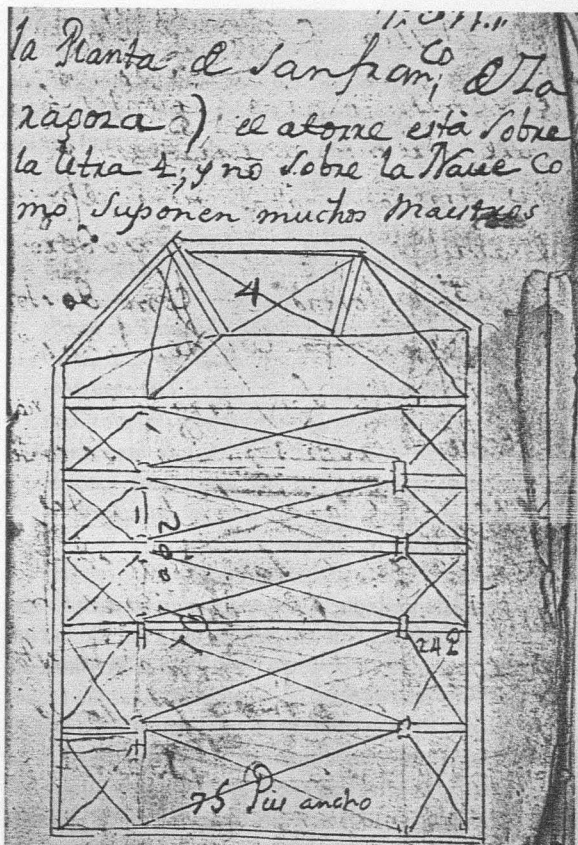 la Planta de Sanfran,co de Za
ragoza) el atorre està sobre
la letra 4; y no sobre la Naue co
mo Suponen muchos Maestros
4
24
75 Pies ancho